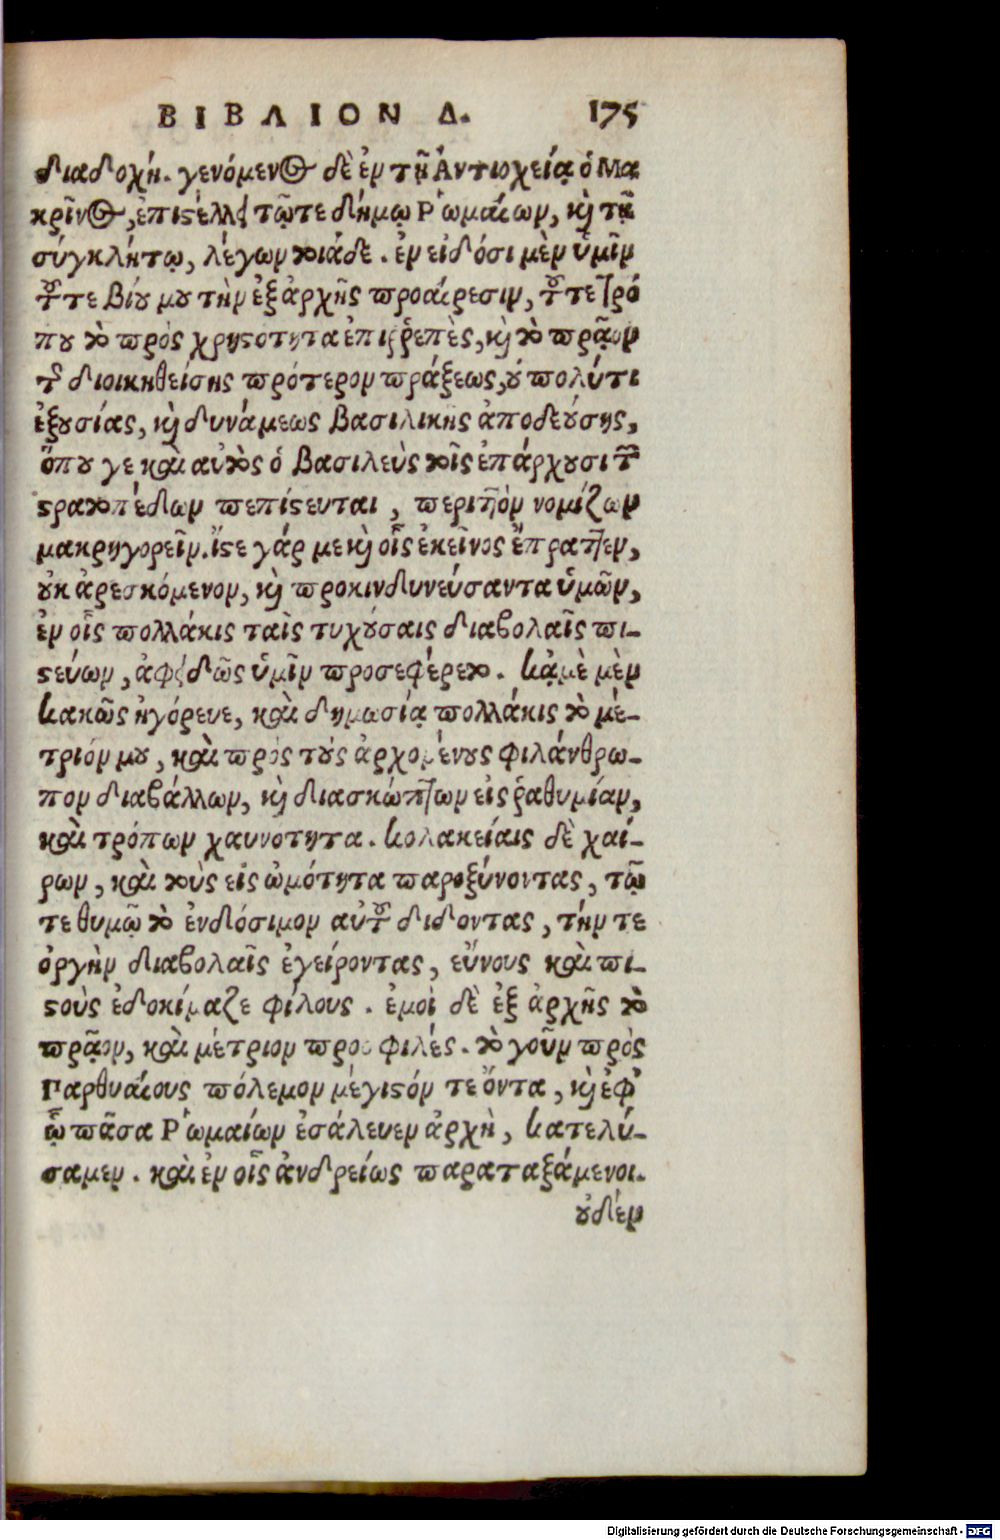 ΒΙΒΛΙΟΝ Δ. 175
διαδοχή. γενόμενος δὲ ἐν τῇ Ἀντιοχείᾳ ὁ Μα
κρῖνος, ἐπιστέλλει τῷ τε δήμῳ Ῥωμαίων, καὶ τῇ
σύγκλήτῳ, λέγων τοιάδε. ἐν εἰδόσι μὲν ὑμῖν
τοῦ τε βίου μου τὴν ἐξ ἀρχῆς προαίρεσιν, τοῦ τε τρό
που τὸ πρὸς χρηστότητα ἐπιρρεπὲς, καὶ τὸ πρᾷον
τῆς διοικηθείσης πρότερον πράξεως, οὐ πολύ τι
ἐξουσίας, καὶ δυνάμεως βασιλικῆς ἀποδεούσης,
ὅπου γε καὶ αὐτὸς ὁ βασιλεὺς τοῖς ἐπάρχουσι τῶν
στρατοπέδων πεπίστευται, περιττὸν νομίζων
μακρηγορεῖν. ἴστε γάρ με καὶ οἷς ἐκεῖνος ἔπραττεν,
οὐκ ἀρεσκόμενον, καὶ προκινδυνεύσαντα ὑμῶν,
ἐν οἷς πολλάκις ταῖς τυχούσαις διαβολαῖς πι-
στεύων, ἀφειδῶς ὑμῖν προσεφέρετο. κᾀμὲ μὲν
κακῶς ἠγόρευε, καὶ δημοσίᾳ πολλάκις τὸ μέ-
τριόν μου, καὶ πρὸς τοὺς ἀρχομένους φιλάνθρω-
πον διαβάλλων, καὶ διασκώπτων εἰς ῥαθυμίαν,
καὶ τρόπων χαυνότητα. κολακείαις δὲ χαί-
ρων, καὶ τοὺς εἰς ὠμότητα παροξύνοντας, τῷ
τε θυμῷ τὸ ἐνδόσιμον αὐτοῦ διδοντας, τήν τε
ὀργὴν διαβολαῖς ἐγείροντας, εὔνους καὶ πι-
στοὺς ἐδοκίμαζε φίλους. ἐμοὶ δὲ ἐξ ἀρχῆς τὸ
πρᾷον, καὶ μέτριον προσφιλές. τὸ γοῦν πρὸς
Παρθυαίους πόλεμον μέγιστόν τε ὄντα, καὶ ἐφ'
ᾧ πᾶσα Ῥωμαίων ἐσάλευεν ἀρχὴ, κατελύ-
σαμεν. καὶ ἐν οἷς ἀνδρείως παραταξάμενοι.
οὐδὲν
Digitalisierung gefördert durch die Deutsche Forschungsgemeinschaft - DFG